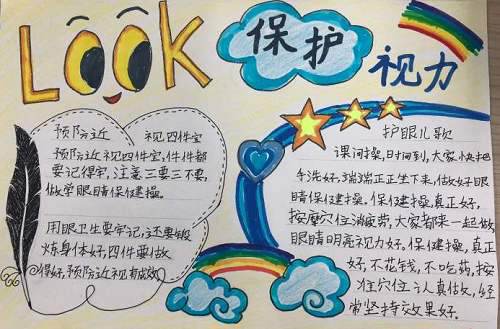 LOOK
保护
视力
预防近 视四件宝
预防近视四件宝,件件都
要记得牢,注意三要三不要,
做学眼睛保健操。
用眼卫生要牢记,还要锻
炼身体好,四件要做
得好,预防近视有成效。
护眼儿歌
课间操,时间到,大家快把
手洗好,端端正正坐下来,做好眼
睛保健操。保健操,真正好,
按摩穴位消疲劳,大家都来一起做,
眼睛明亮视力好。保健操,真正
好,不花钱,不吃药,按
住穴位认真做,经
常坚持效果好。